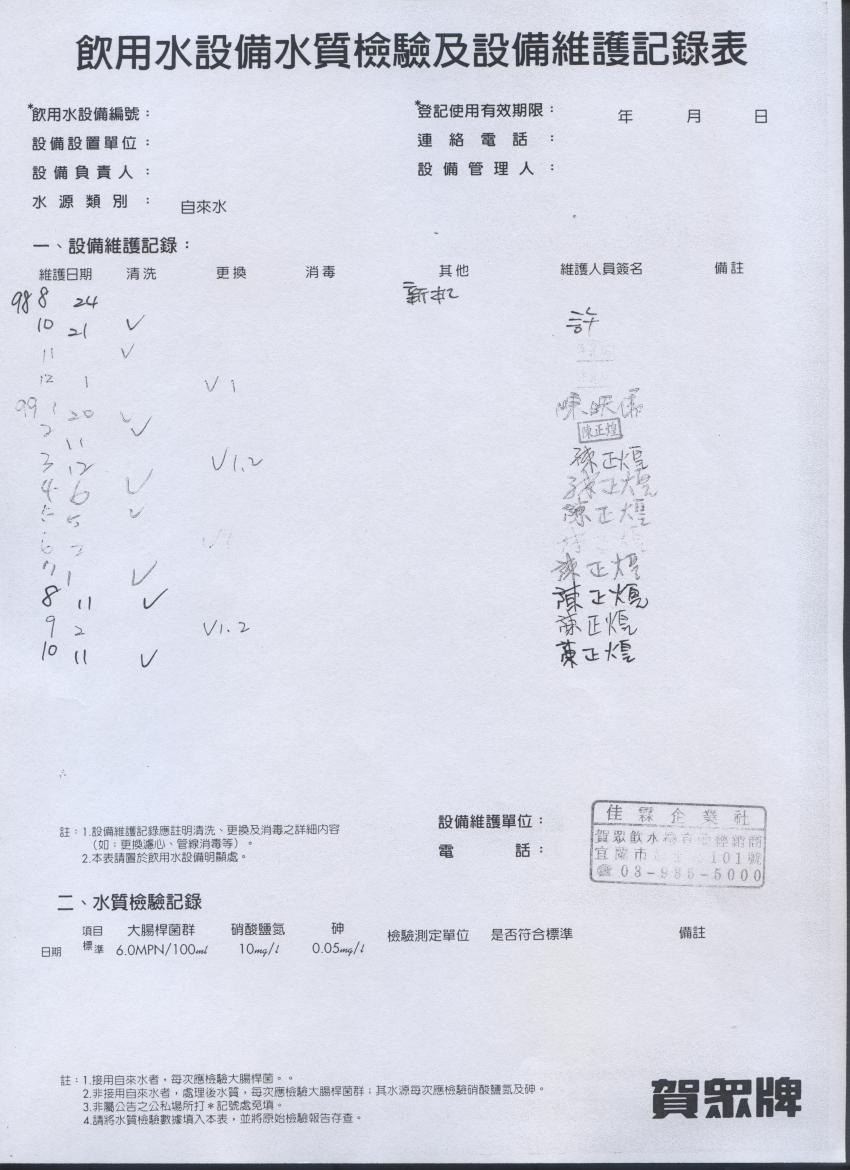 飲用水設備水質檢驗及設備維護記錄表
*飲用水設備編號： *登記使用有效期限： 年 月 日
設備設置單位： 連絡電話：
設備負責人： 設備管理人：
水源類別： 自來水
一、設備維護記錄：
維護日期 清洗 更換 消毒 其他 維護人員簽名 備註
98 8 24 新机
10 21 ✓ 許
11 ✓
12 1 ✓1
99 1 20 ✓
2 11 ✓ 陳正煌
3 12 ✓1.2 陳正煌
4 6 ✓ 陳正煌
5 5 ✓ 陳正煌
6 2
7 1 ✓ 陳正煌
8 11 ✓ 陳正煌
9 2 ✓1.2 陳正煌
10 11 ✓ 陳正煌
註：1.設備維護記錄應註明清洗、更換及消毒之詳細內容
（如：更換濾心、管線消毒等）。
2.本表請置於飲用水設備明顯處。
設備維護單位：
電話：
佳霖企業社
賀眾飲水 經銷商
宜蘭市 101號
☎ 03-935-5000
二、水質檢驗記錄
項目 大腸桿菌群 硝酸鹽氮 砷 檢驗測定單位 是否符合標準 備註
日期 標準 6.0MPN/100ml 10mg/l 0.05mg/l
註：1.接用自來水者，每次應檢驗大腸桿菌。。
2.非接用自來水者，處理後水質，每次應檢驗大腸桿菌群；其水源每次應檢驗硝酸鹽氮及砷。
3.非屬公告之公私場所打＊記號處免填。
4.請將水質檢驗數據填入本表，並將原始檢驗報告存查。
賀眾牌